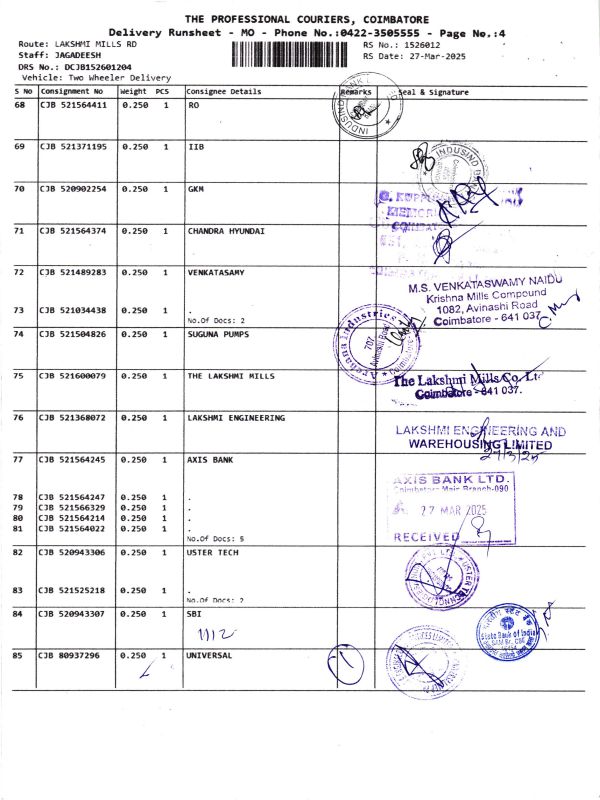 THE PROFESSIONAL COURIERS, COIMBATORE
Delivery Runsheet - MO - Phone No.:0422-3505555 - Page No.:4
Route: LAKSHMI MILLS RD
RS No.: 1526012
Staff: JAGADEESH
RS Date: 27-Mar-2025
DRS No.: DCJB152601204
Vehicle: Two Wheeler Delivery
S No Consignment No Weight PCS Consignee Details Remarks Seal & Signature
68 CJB 521564411 0.250 1 RO
69 CJB 521371195 0.250 1 IIB
INDUSIND
70 CJB 520902254 0.250 1 GKM
71 CJB 521564374 0.250 1 CHANDRA HYUNDAI
72 CJB 521489283 0.250 1 VENKATASAMY
M.S. VENKATASWAMY NAIDU
Krishna Mills Compound
1082, Avinashi Road
Coimbatore - 641 037
73 CJB 521034438 0.250 1 .
No.Of Docs: 2
74 CJB 521504826 0.250 1 SUGUNA PUMPS
Archana Industries
707
Avinashi Road
75 CJB 521600079 0.250 1 THE LAKSHMI MILLS
The Lakshmi Mills Co. Lt
Coimbatore - 641 037.
76 CJB 521368072 0.250 1 LAKSHMI ENGINEERING
LAKSHMI ENGINEERING AND
WAREHOUSING LIMITED
27/3/25
77 CJB 521564245 0.250 1 AXIS BANK
AXIS BANK LTD.
Coimbatore Main Branch-090
27 MAR 2025
RECEIVED
78 CJB 521564247 0.250 1 .
79 CJB 521566329 0.250 1 .
80 CJB 521564214 0.250 1 .
81 CJB 521564022 0.250 1 .
No.Of Docs: 5
82 CJB 520943306 0.250 1 USTER TECH
83 CJB 521525218 0.250 1 .
No.Of Docs: 2
84 CJB 520943307 0.250 1 SBI
State Bank of India
85 CJB 80937296 0.250 1 UNIVERSAL
1